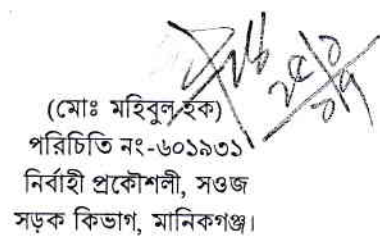 (মোঃ মহিবুল হক)
পরিচিতি নং-৬০১৯৩১
নির্বাহী প্রকৌশলী, সওজ
সড়ক কিভাগ, মানিকগঞ্জ।